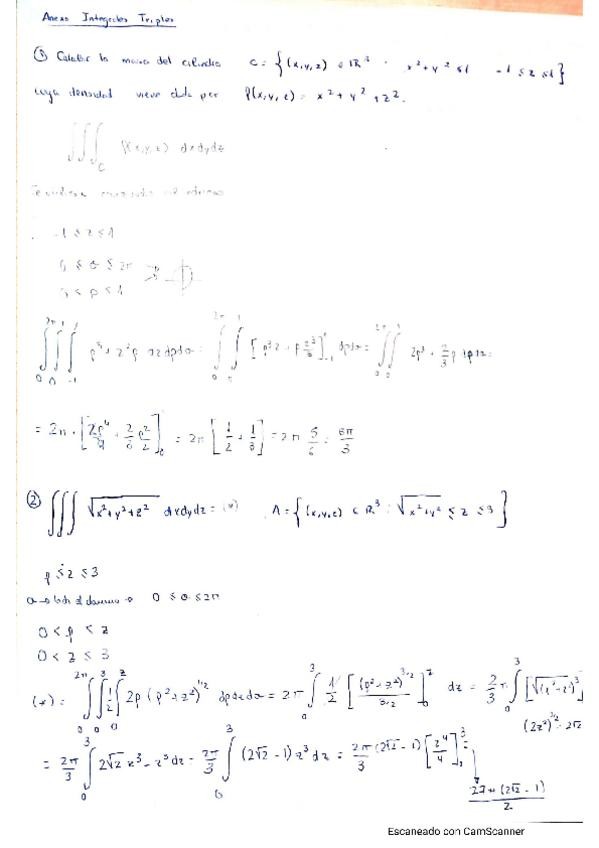 Anexo Integrales Triples
① Calcular la masa del cilindro C = {(x,y,z) ∈ ℝ³ : x²+y² ≤ 1 -1 ≤ z ≤ 1}
cuya densidad viene dada por ρ(x,y,z) = x² + y² + z².
∭_C ρ(x,y,z) dxdydz
-1 ≤ z ≤ 1
0 ≤ θ ≤ 2π
0 < ρ < 1
∫₀^{2π} ∫₀^1 ∫₋₁^1 ρ³ + z²ρ dz dρ dθ = ∫₀^{2π} ∫₀^1 [ρ³z + ρ z³/3]₋₁^1 dρdθ = ∫₀^{2π} ∫₀^1 2ρ³ + 2/3 ρ dρdθ =
= 2π · [2ρ⁴/4 + 2/3 ρ²/2]₀ = 2π [1/2 + 1/3] = 2π 5/6 = 5π/3
② ∭ √(x²+y²+z²) dxdydz = (*) A = {(x,y,z) ∈ ℝ³ : √(x²+y²) ≤ z ≤ 3}
ρ ≤ z ≤ 3
0 ≤ θ ≤ 2π
0 < ρ < z
0 < z ≤ 3
(*) = ∫₀^{2π} ∫₀^3 ∫₀^z 1/2 2ρ (ρ²+z²)^{1/2} dρdzdθ = 2π ∫₀^3 1/2 [(ρ²+z²)^{3/2} / 3/2]₀^z dz = 2/3 π ∫₀^3
(2z²)^{3/2} = 2√2
= 2π/3 ∫₀^3 2√2 z³ - z³ dz = 2π/3 ∫₀^3 (2√2 - 1) z³ dz = 2π/3 (2√2 - 1) [z⁴/4]
27π (2√2 - 1) / 2
Escaneado con CamScanner